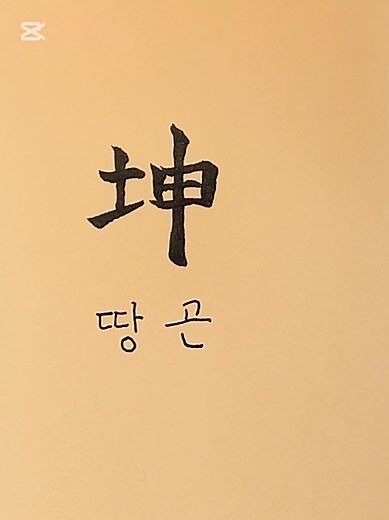 坤
땅 곤